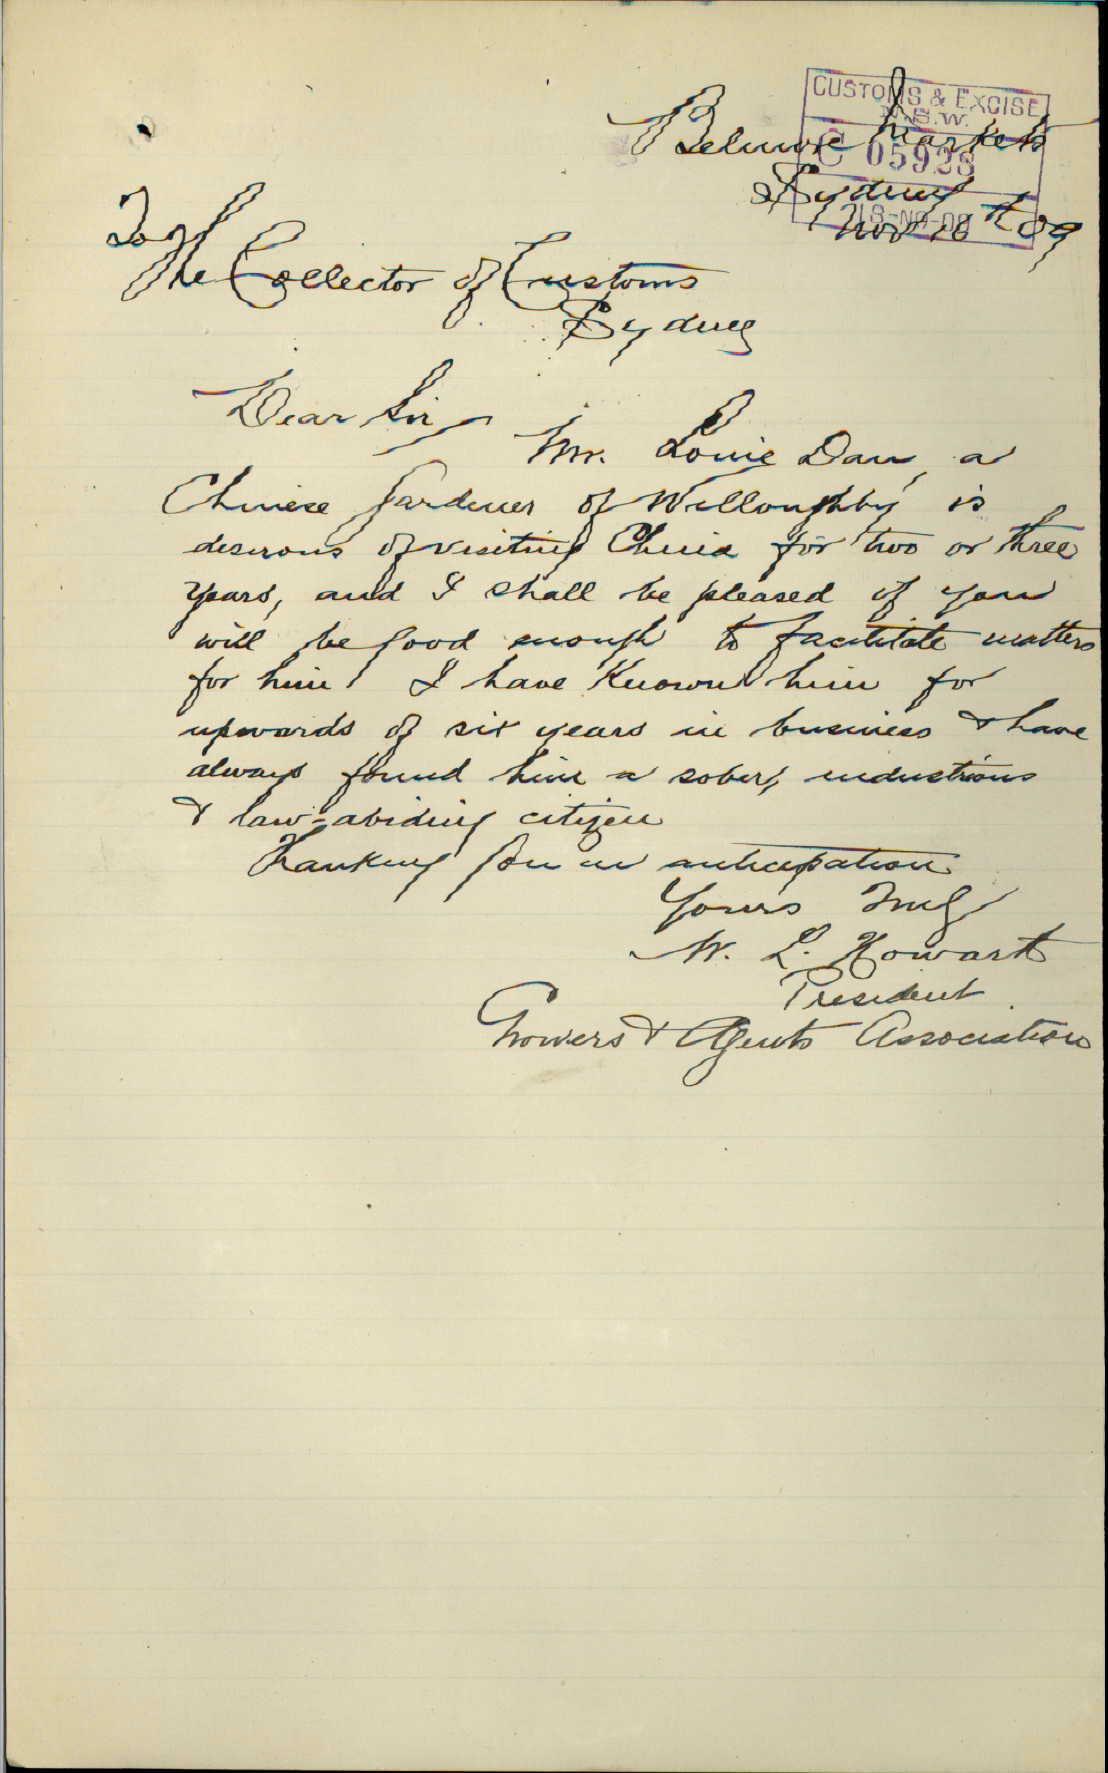 CUSTOMS & EXCISE
N.S.W.
C 05928
18-NO-09
Belmore Markets
Sydney
Nov 18th 09
To
The Collector of Customs
Sydney
Dear Sir
Mr. Louie Dau, a
Chinese Gardener of Willoughby is
desirous of visiting China for two or three
years, and I shall be pleased if you
will be good enough to facilitate matters
for him. I have Known him for
upwards of six years in business & have
always found him a sober, industrious
& law-abiding citizen
Thanking you in anticipation
Yours Truly
W. L. Howarth
President
Growers & Agents Association